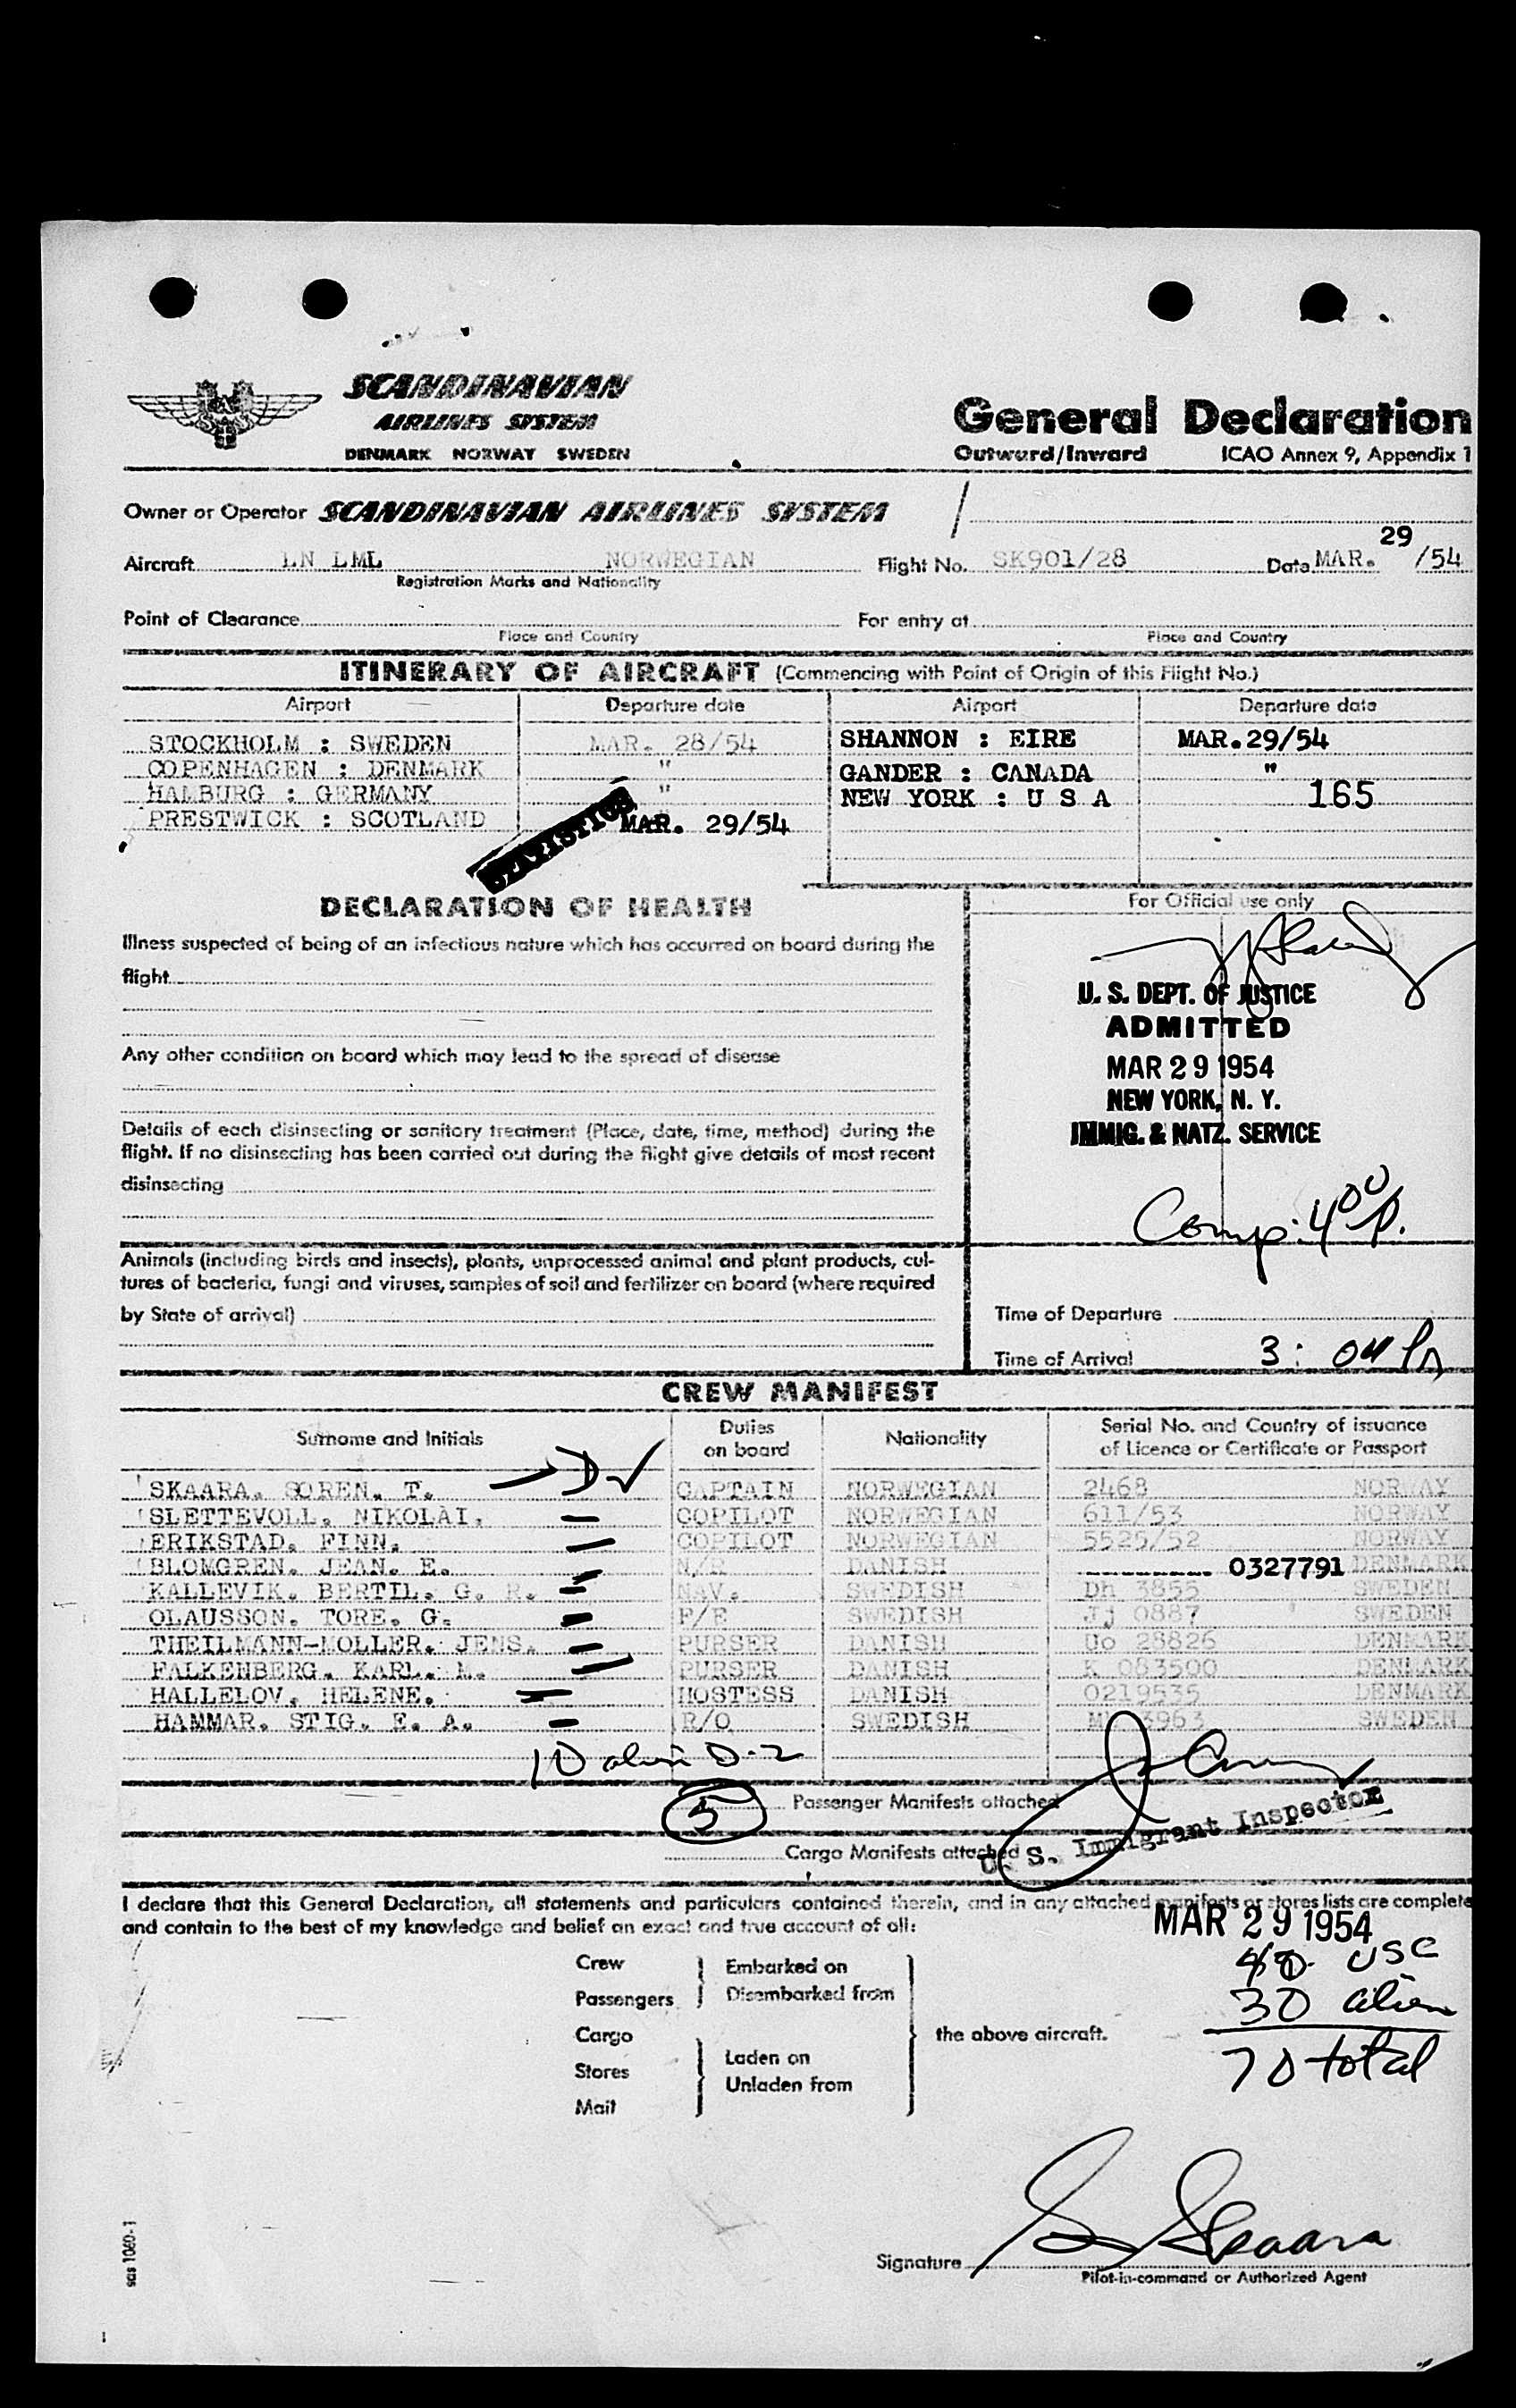 SCANDINAVIAN
AIRLINES SYSTEM
DENMARK NORWAY SWEDEN
General Declaration
Outward/Inward ICAO Annex 9, Appendix 1
Owner or Operator SCANDINAVIAN AIRLINES SYSTEM /
29
Aircraft LN LML NORWEGIAN Flight No. SK901/28 Date MAR. /54
Registration Marks and Nationality
Point of Clearance For entry at
Place and Country Place and Country
ITINERARY OF AIRCRAFT (Commencing with Point of Origin of this Flight No.)
Airport Departure date Airport Departure date
STOCKHOLM : SWEDEN MAR. 28/54 SHANNON : EIRE MAR.29/54
COPENHAGEN : DENMARK " GANDER : CANADA "
HALBURG : GERMANY " NEW YORK : U S A 165
PRESTWICK : SCOTLAND MAR. 29/54
STATISTICS
DECLARATION OF HEALTH
For Official use only
Illness suspected of being of an infectious nature which has occurred on board during the
flight
U. S. DEPT. OF JUSTICE
ADMITTED
MAR 29 1954
NEW YORK, N. Y.
IMMIG. & NATZ. SERVICE
Any other condition on board which may lead to the spread of disease
Details of each disinsecting or sanitary treatment (Place, date, time, method) during the
flight. If no disinsecting has been carried out during the flight give details of most recent
disinsecting
Comp: 4 00 p.
Animals (including birds and insects), plants, unprocessed animal and plant products, cul-
tures of bacteria, fungi and viruses, samples of soil and fertilizer on board (where required
by State of arrival)
Time of Departure
Time of Arrival 3: 04 Pm
CREW MANIFEST
Surname and Initials Duties on board Nationality Serial No. and Country of issuance of Licence or Certificate or Passport
D✓
SKAARA. SOREN. T. CAPTAIN NORWEGIAN 2468 NORWAY
SLETTEVOLL. NIKOLAI. COPILOT NORWEGIAN 611/53 NORWAY
ERIKSTAD. FINN. COPILOT NORWEGIAN 5525/52 NORWAY
BLOMGREN. JEAN. E. N/R DANISH --------- 0327791 DENMARK
KALLEVIK. BERTIL. G. R. NAV. SWEDISH Dh 3855 SWEDEN
OLAUSSON. TORE. G. F/E SWEDISH Jj 0887 SWEDEN
THEILMANN-MOLLER. JENS. PURSER DANISH Uo 28826 DENMARK
FALKENBERG. KARL. M. PURSER DANISH K 083500 DENMARK
HALLELOV. HELENE. HOSTESS DANISH 0219535 DENMARK
HAMMAR. STIG. E. A. R/O SWEDISH 3963 SWEDEN
10 alien D-2
5 Passenger Manifests attached
Cargo Manifests attached
U. S. Immigrant Inspector
I declare that this General Declaration, all statements and particulars contained therein, and in any attached manifests or stores lists are complete
and contain to the best of my knowledge and belief an exact and true account of all:
MAR 29 1954
40 USC
30 alien
70 total
Crew Embarked on
Passengers Disembarked from
Cargo the above aircraft.
Stores Laden on
Unladen from
Mail
Signature S Skaara
Pilot-in-command or Authorized Agent
sas 1060-1